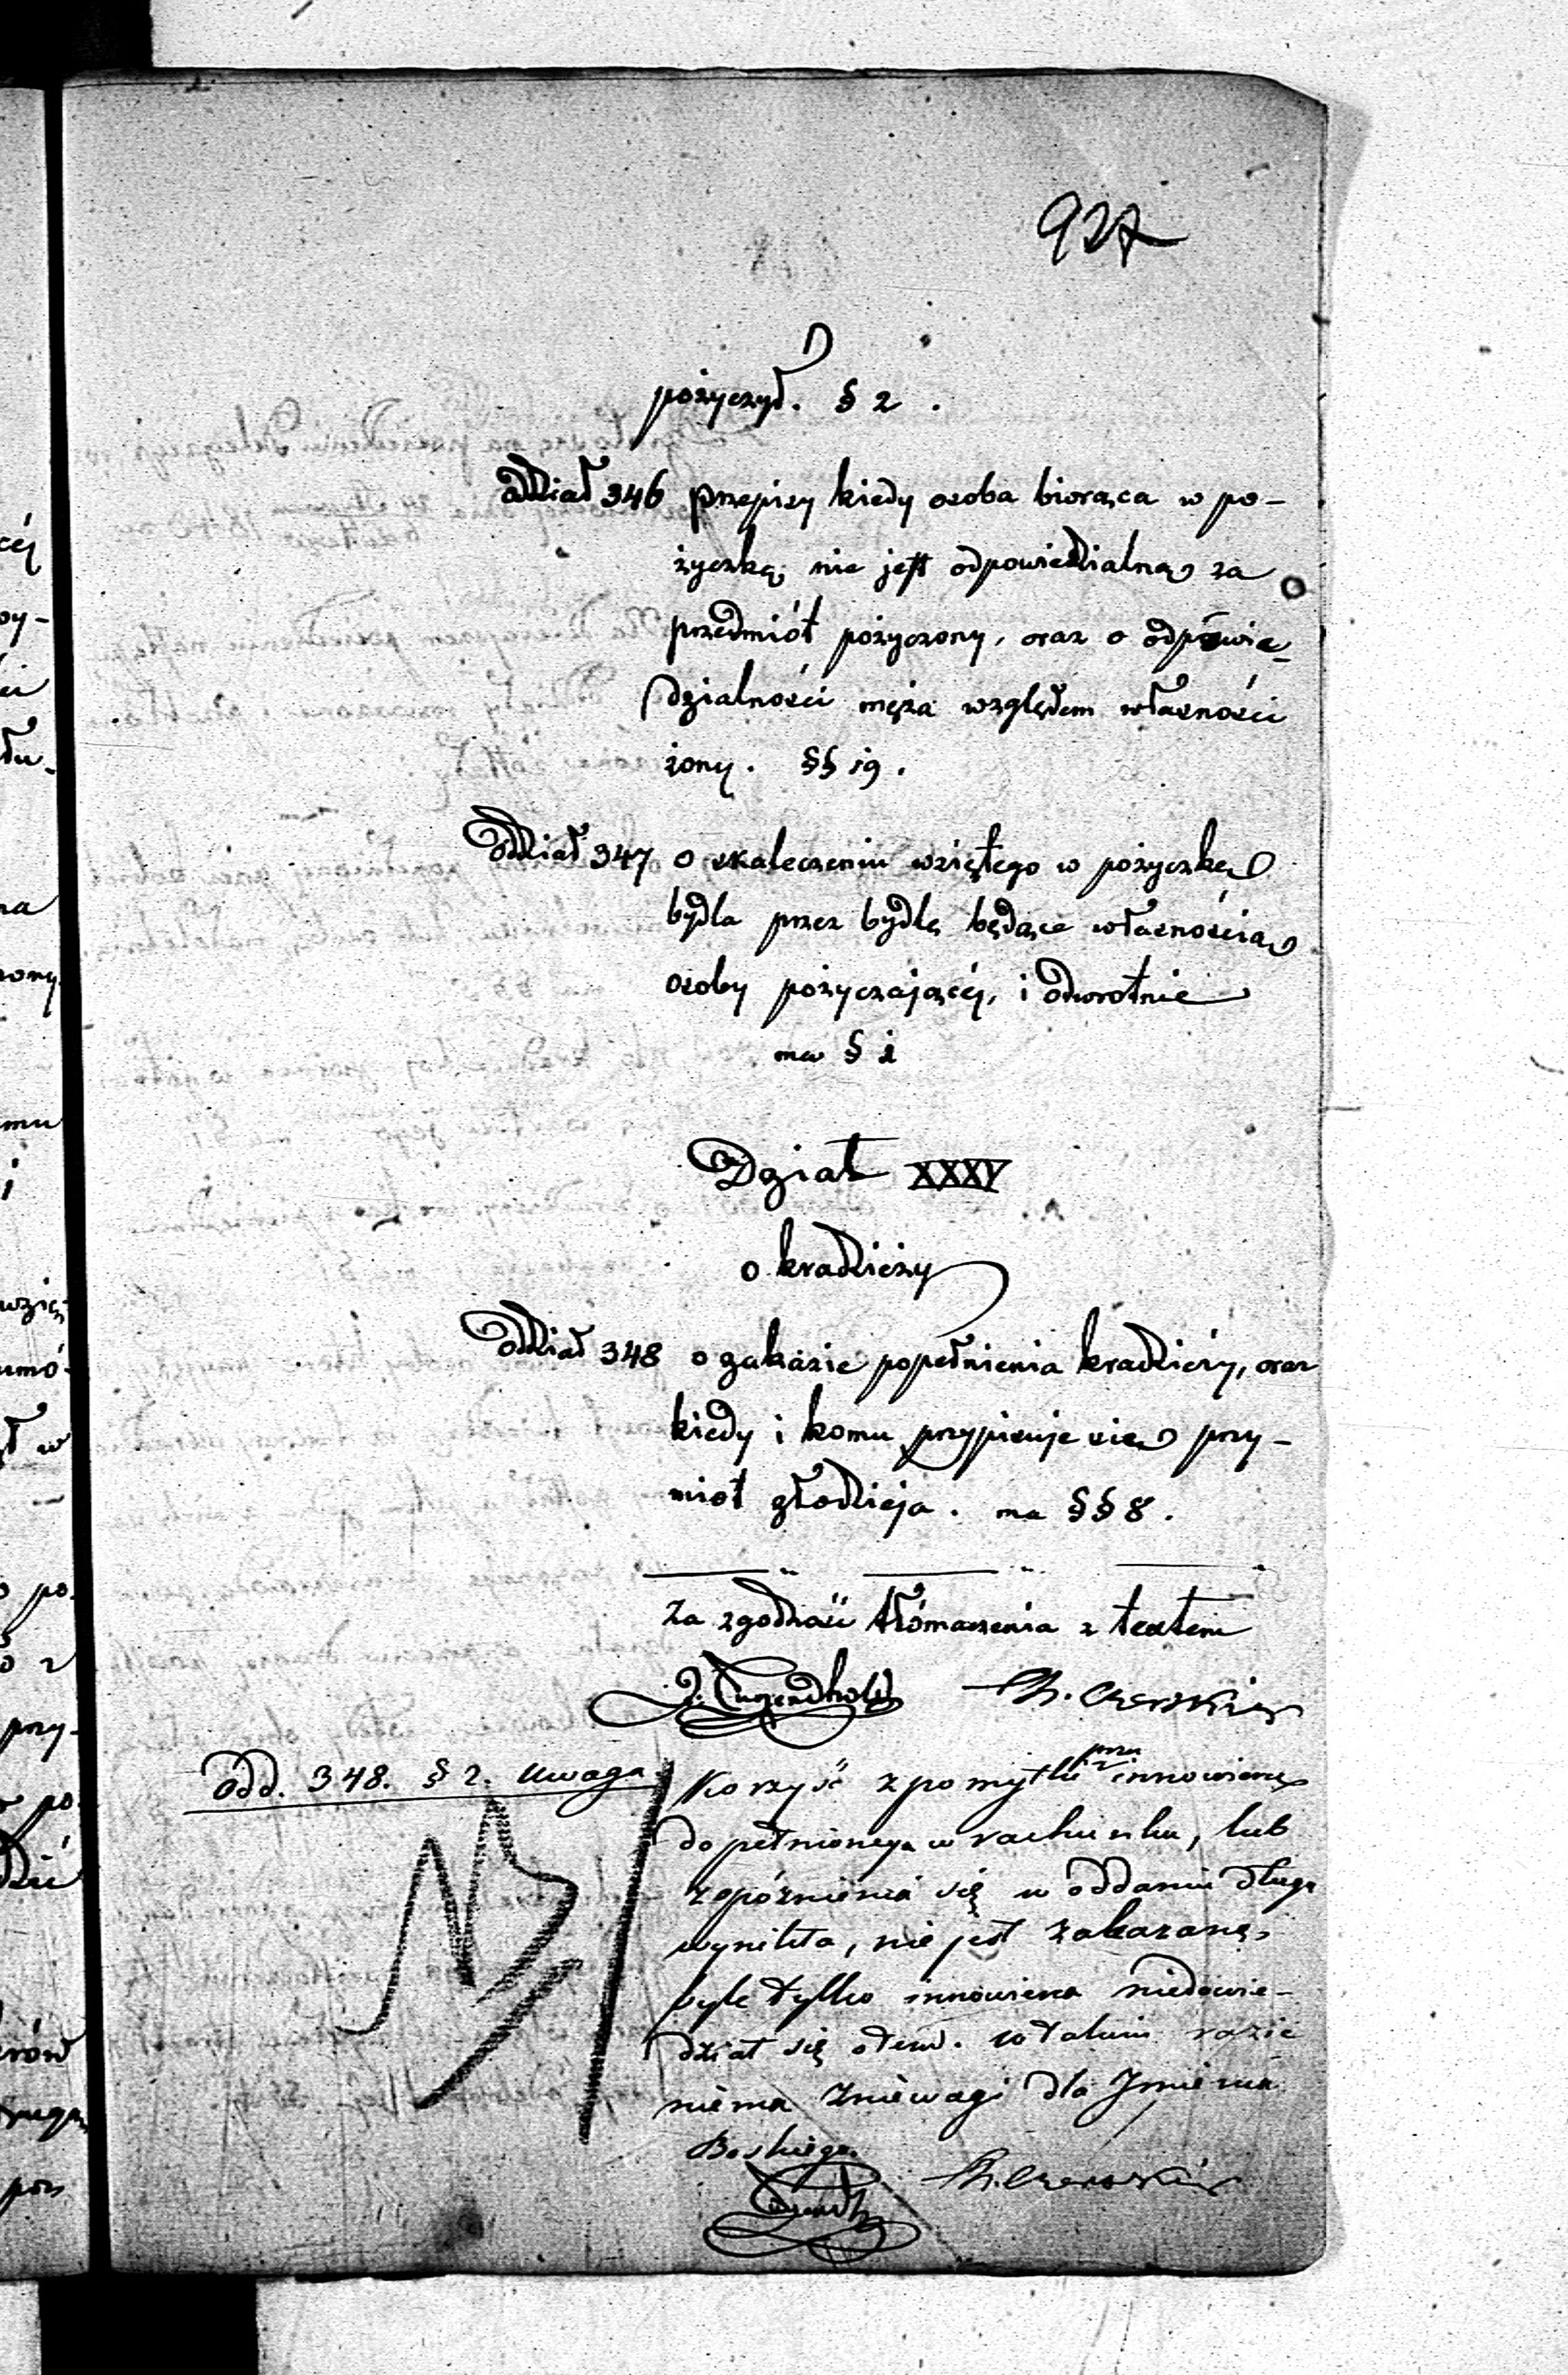 927
pożyczył. § 2.
oddział 346 przepisy kiedy osoba biorąca w po-
życzkę, nie jest odpowiedzialną za
przedmiót pożyczony, oraz o odpowie-
dzialności męża względem własności
żony. §§ 19.
Oddział 347 o skaleczeniu wziętego w pożyczkę
bydła przez bydlę będące własnością
osoby pożyczającéj, i odwrotnie
ma § 1
Dział XXXV
o kradzieży
Oddział 348 o zakazie popełnienia kradzieży, oraz
kiedy i komu przypisuje się przy-
miot złodzieja. ma §§ 8.
Za zgodność tłómaczenia z textem
J. Tugendhold
odd. 348. § 2. uwaga
NB
Korzyść z pomyłki przez innowiercę
dopełnionéj w rachunku, lub
zapóźnienia się w oddaniu długu
wynikła, nie jest zakazaną,
byle tylko innowierca niedowie-
dział się o tém. w takim razie
niema zniewagi dla Imienia
Boskiego.